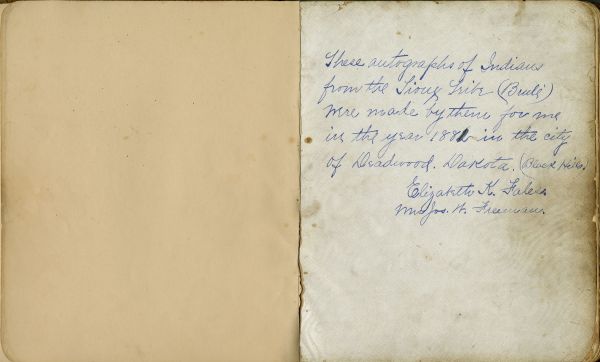 These autographs of Indians
from the Sioux Tribe (Brulé)
were made by them for me
in the year 188 in the city
of Deadwood. Dakota. (Black Hills)
Elizabeth K.
Mrs Jos. H. Freeman.